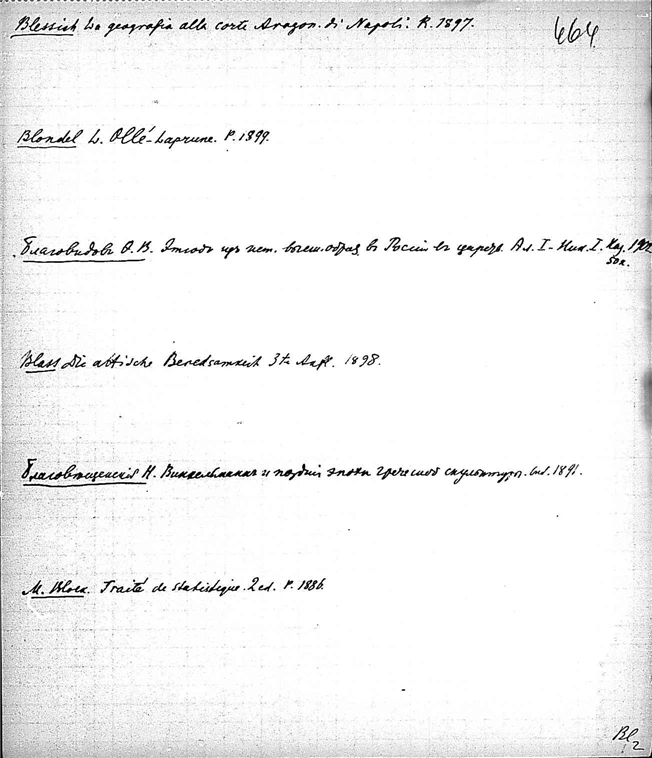 Blessich La geografia alla corte Aragon. di Napoli. R. 1897.
464.
Blondel L. Ollé-Laprune. P. 1899.
Благовидовъ Ѳ. В. изъ ист. высш. образ. въ Россіи въ царств. Ал. I - Ник. I. Каз. 1902
50 к.
Blass Die attische Beredsamkeit 3te Aufl. 1898.
Благовѣщенскій Н. Винкельманнъ и поздній эпохи греческой скульптуры. Спб. 1891.
M. Block. Traité de statistique. 2 ed. P. 1886.
Bl
2